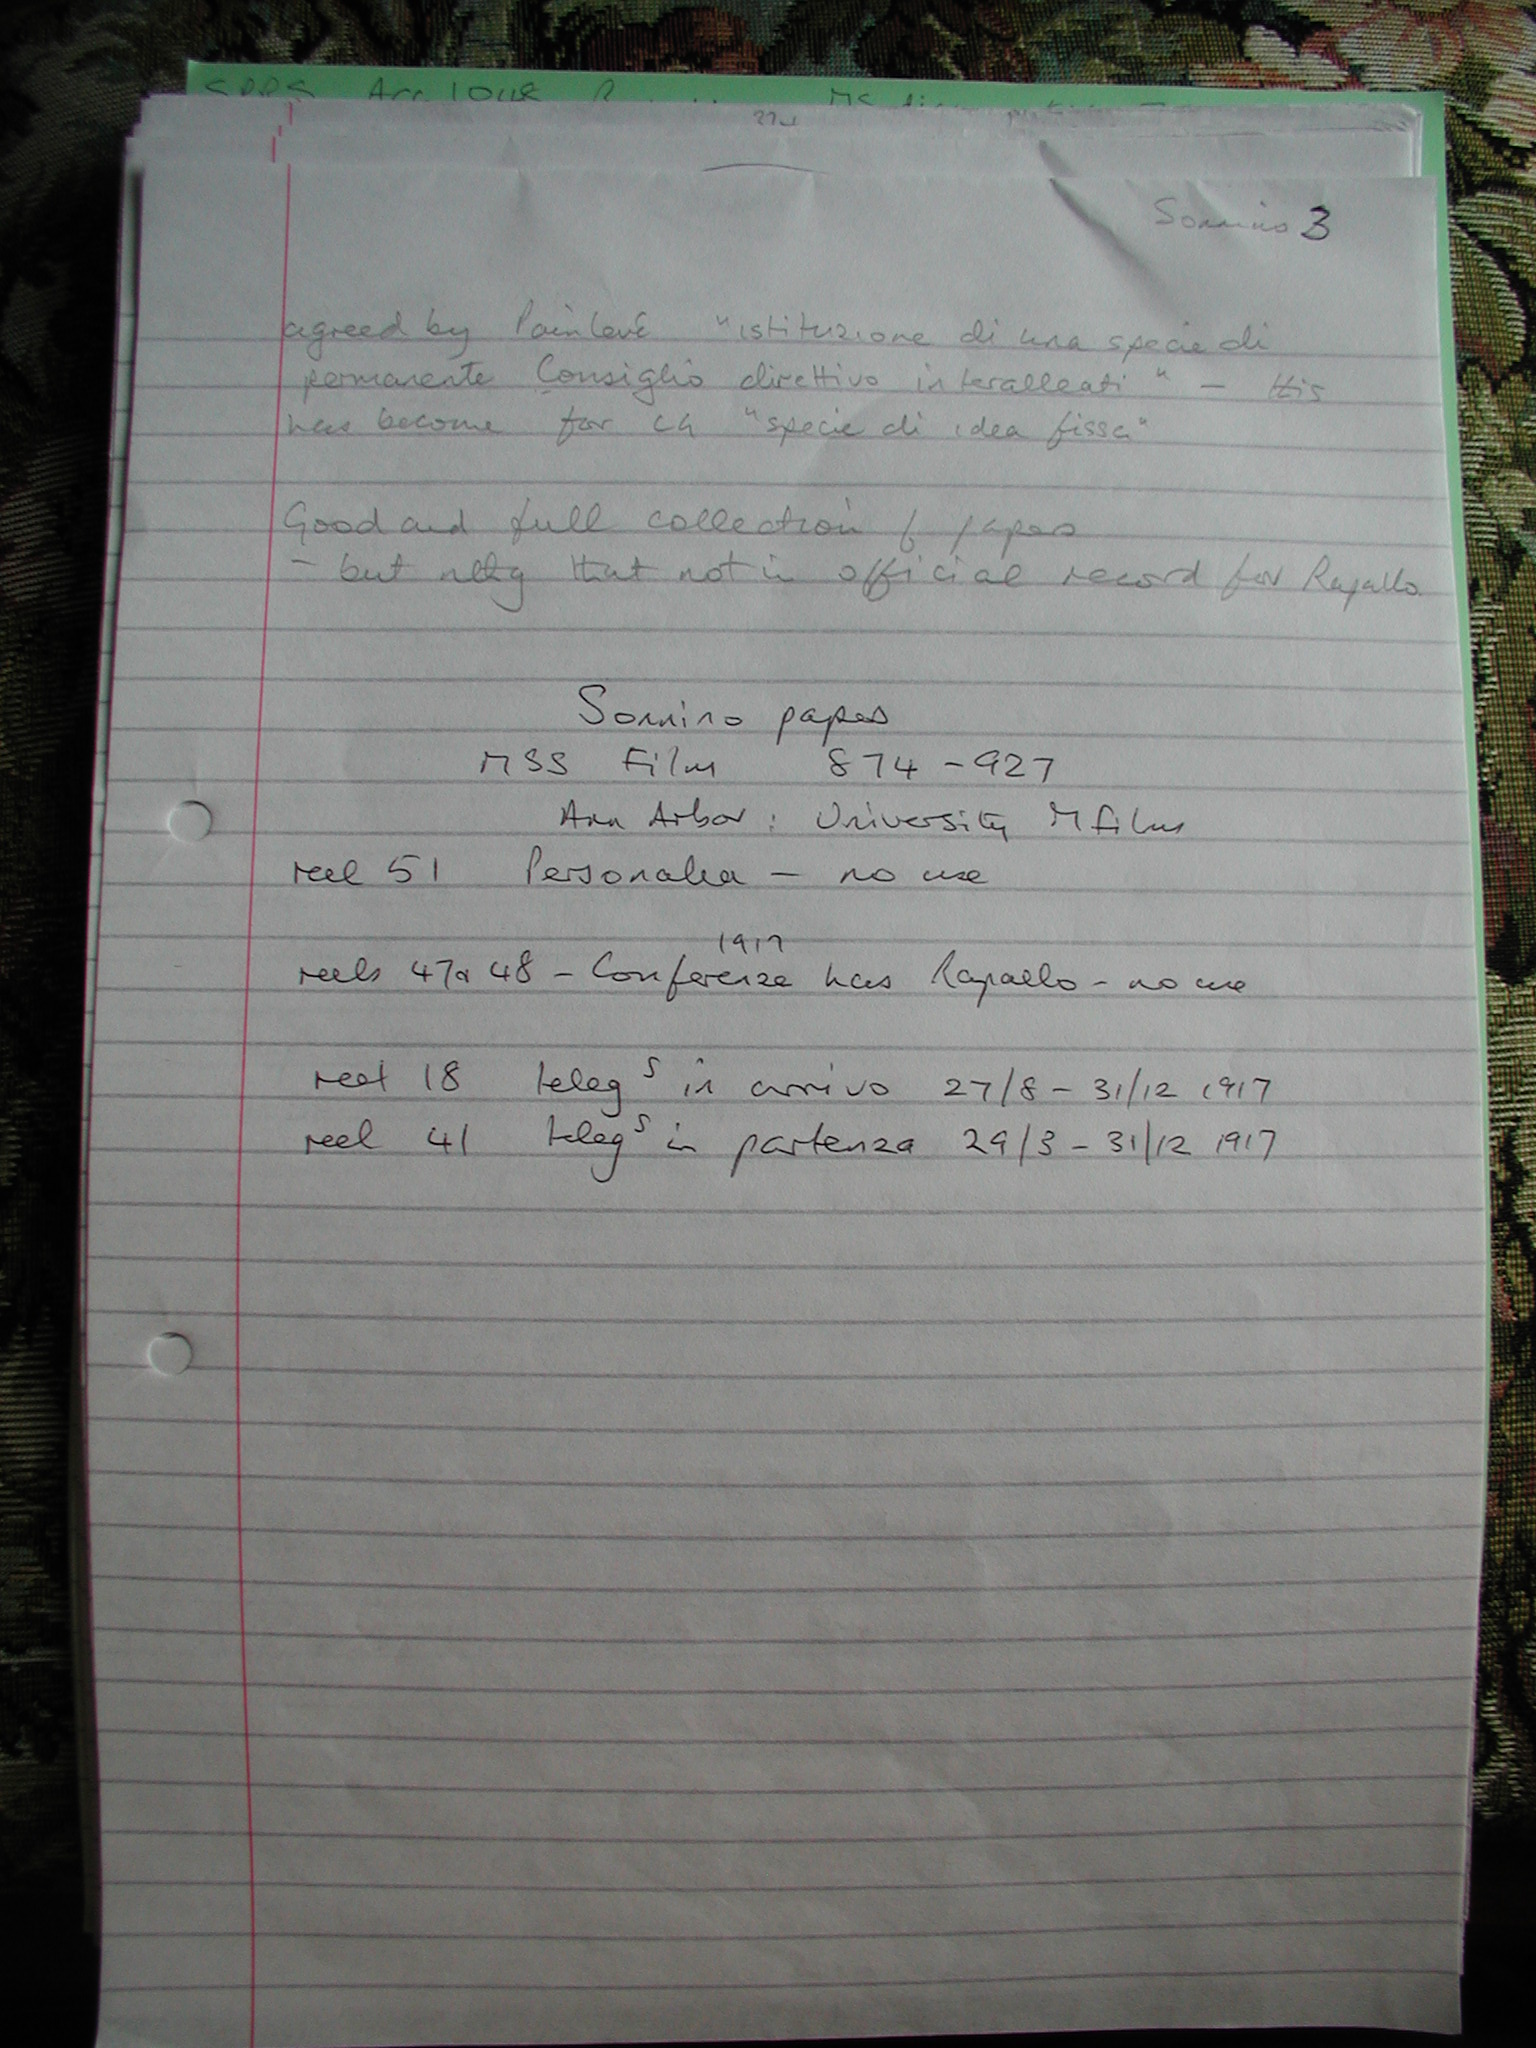 Sonnino 3
agreed by Painlevé "istituzione di una specie di
permanente Consiglio direttivo interalleati" – this
has become for LG "specie di idea fissa"
Good and full collection of papers
– but nthg that not in official record for Rapallo
Sonnino papers
MSS Film 874-927
Ann Arbor: University Mfilms
reel 51 Personalia – no use
1917
reels 47 & 48 – Conferenze has Rapallo – no use
reel 18 telegs in arrivo 27/8 – 31/12 1917
reel 41 telegs in partenza 29/3 – 31/12 1917